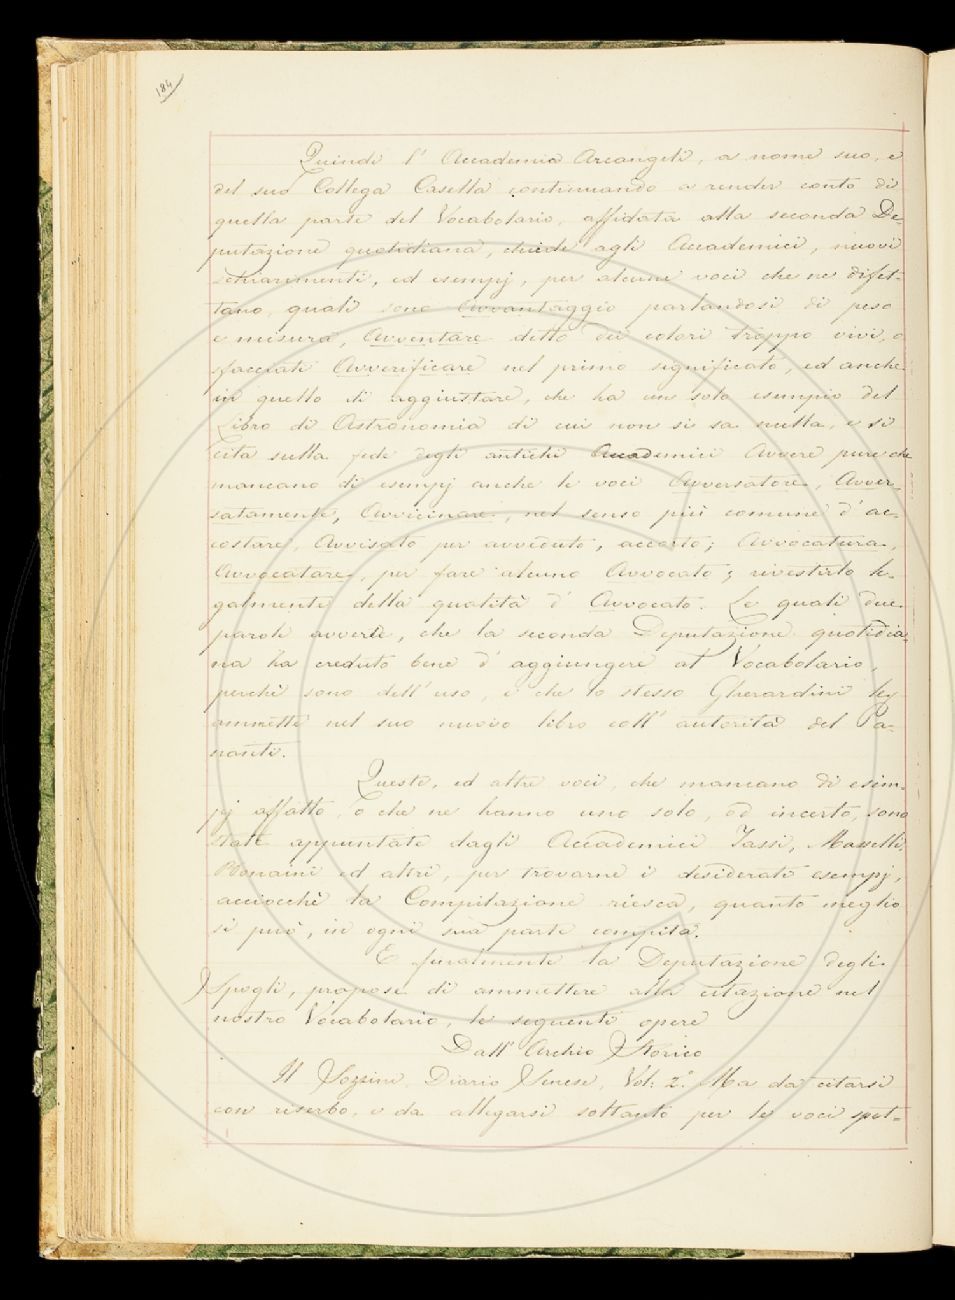 184
Quindi l' Accademia Arcangeli, a nome suo, e
del suo Collega Casella continuando a render conto di
quella parte del Vocabolario, affidata alla seconda De-
putazione quotidiana, chiede agli Accademici, nuovi
schiarimenti, ed esempj, per alcune voci che ne difet-
tano, quali sono Avvantaggio parlandosi di peso
e misura, Avventare detto dei colori troppo vivi, o
sfacciati Avverificare nel primo significato, ed anche
in quello di aggiustare, che ha un solo esempio del
Libro di Astronomia di cui non si sa nulla, e si
cita sulla fede degli antichi Accademici Avverè pure che
mancano di esempj anche le voci Avversatore, Avver-
satamente, Avvicinare, nel senso più comune d' ac-
costare, Avvisato per avveduto, accorto; Avvocatura,
Avvocatare, per fare alcuno Avvocato; rivestirlo le-
galmente della qualità d' Avvocato. Le quali due
parole avverte, che la seconda Deputazione quotidia-
na ha creduto bene d' aggiungere al Vocabolario,
perchè sono dell' uso, e che lo stesso Gherardini le
ammette nel suo nuovo libro coll' autorità del Pa-
nanti.
Queste, ed altre voci, che mancano di esem-
pj affatto, o che ne hanno uno solo, od incerto, sono
state appuntate dagli Accademici Tassi, Masselli,
Bonaini ed altri, per trovarne i desiderati esempj,
acciocchè la Compilazione riesca, quanto meglio
si può, in ogni sua parte compita.
E finalmente la Deputazione degli
Spogli, propose di ammettere alla citazione nel
nostro Vocabolario, le seguenti opere
Dall' Archio Storico
Il Sozzini, Diario Senese, Vol: 2.° Ma da citarsi
con riserbo, e da allegarsi soltanto per le voci spet-